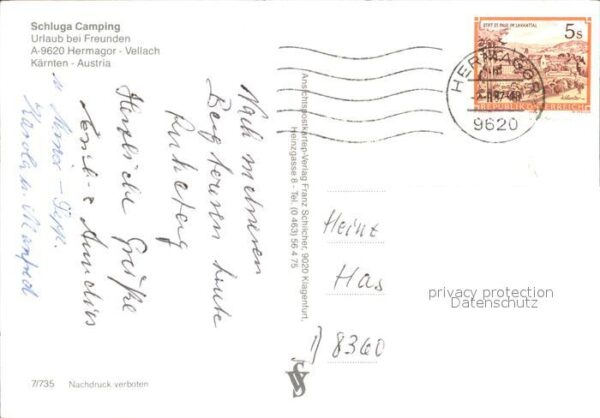 Schluga Camping
Urlaub bei Freunden
A-9620 Hermagor - Vellach
Kärnten - Austria
Nach mehreren
Bergtouren heute
Ruhetag
Herzliche Grüße
u.
Ansichtspostkarten-Verlag Franz Schilcher, 9020 Klagenfurt,
Heinzgasse 8 - Tel. (0 463) 56 4 75
STIFT ST. PAUL IM LAVANTTAL
5 S
REPUBLIK ÖSTERREICH
HERMAGOR
9620
Heinz
Has
D 8360
privacy protection
Datenschutz
7/735 Nachdruck verboten